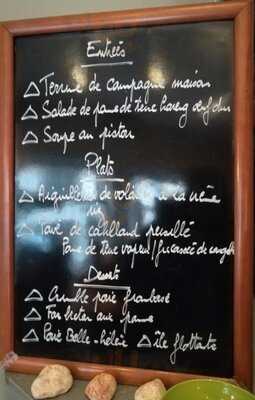 Entrées
Terrine de campagne maison
Salade de pomme de terre hareng œuf dur
Soupe au pistou
Plats
Aiguillettes de volaille à la crème
riz
Pavé de cabillaud persillé
Pomme de terre vapeur / fricassée de
Desserts
Crumble poire framboise
Far breton aux
Poire Belle-hélène île flottante